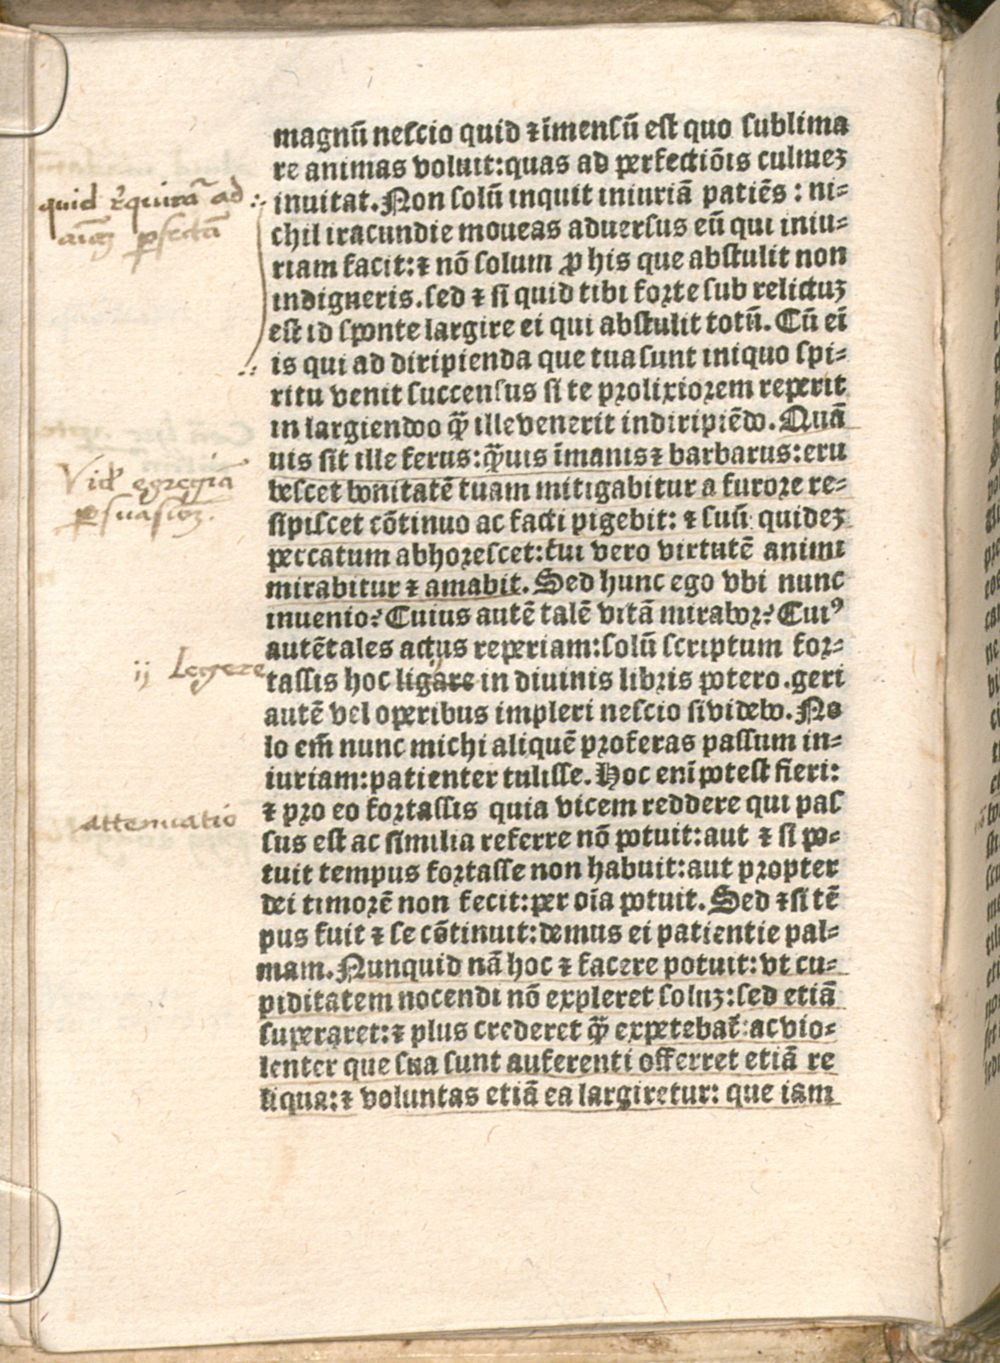 magnū nescio quid ⁊ īmensū est quo sublima
re animas voluit:quas ad perfectiōis culmeꝫ
inuitat.Non solū inquit iniuriā patiēs : ni-
chil iracundie moueas aduersus eū qui iniu-
riam facit:⁊ nō solum ꝓ his que abstulit non
indigneris.sed ⁊ si quid tibi forte sub relictuꝫ
est id sponte largire ei qui abstulit totū. Cū eī
is qui ad diripienda que tua sunt iniquo spi-
ritu venit succensus si te prolixiorem reperit
in largiendo ꝙ̄ ille venerit in diripiēdo. Quā
uis sit ille ferus:ꝙ̄uis īmanis ⁊ barbarus:eru
bescet bonitatē tuam mitigabitur a furore re-
sipiscet cōtinuo ac facti pigebit: ⁊ suū quideꝫ
peccatum abhorescet:tui vero virtutē animi
mirabitur ⁊ amabit. Sed hunc ego vbi nunc
inuenio? Cuius autē talē vitā mirabor? Cuiꝰ
autē tales actus reperiam:solū scriptum for-
tassis hoc ligare in diuinis libris potero.geri
autē vel operibus impleri nescio si videbo. No
lo em̄ nunc michi aliquē proferas passum in-
iuriam:patienter tulisse. Hoc eni potest fieri:
⁊ pro eo fortassis quia vicem reddere qui pas
sus est ac similia referre nō potuit:aut ⁊ si po-
tuit tempus fortasse non habuit:aut propter
dei timorē non fecit:per oīa potuit. Sed ⁊ si tē
pus fuit ⁊ se cōtinuit:demus ei patientie pal-
mam. Nunquid nā hoc ⁊ facere potuit: vt cu-
piditatem nocendi nō expleret soluꝫ:sed etiā
superaret:⁊ plus crederet ꝙ̄ expetebat̄: ac vio-
lenter que sua sunt auferenti offerret etiā re
liqua:⁊ voluntas etiā ea largiretur: que iam
quid reꝗuirat̄ ad
ꝑfectā
Vid' egregia
ꝑsuasioꝫ.
ij Legere
attenuatio